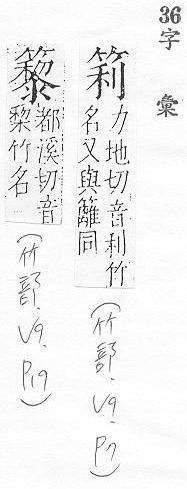 36字彙
䈊力地切音利竹
名又與籬同
(竹部.V9.P7)
䉫都溪切音
黎竹名
(竹部.V9.P19)